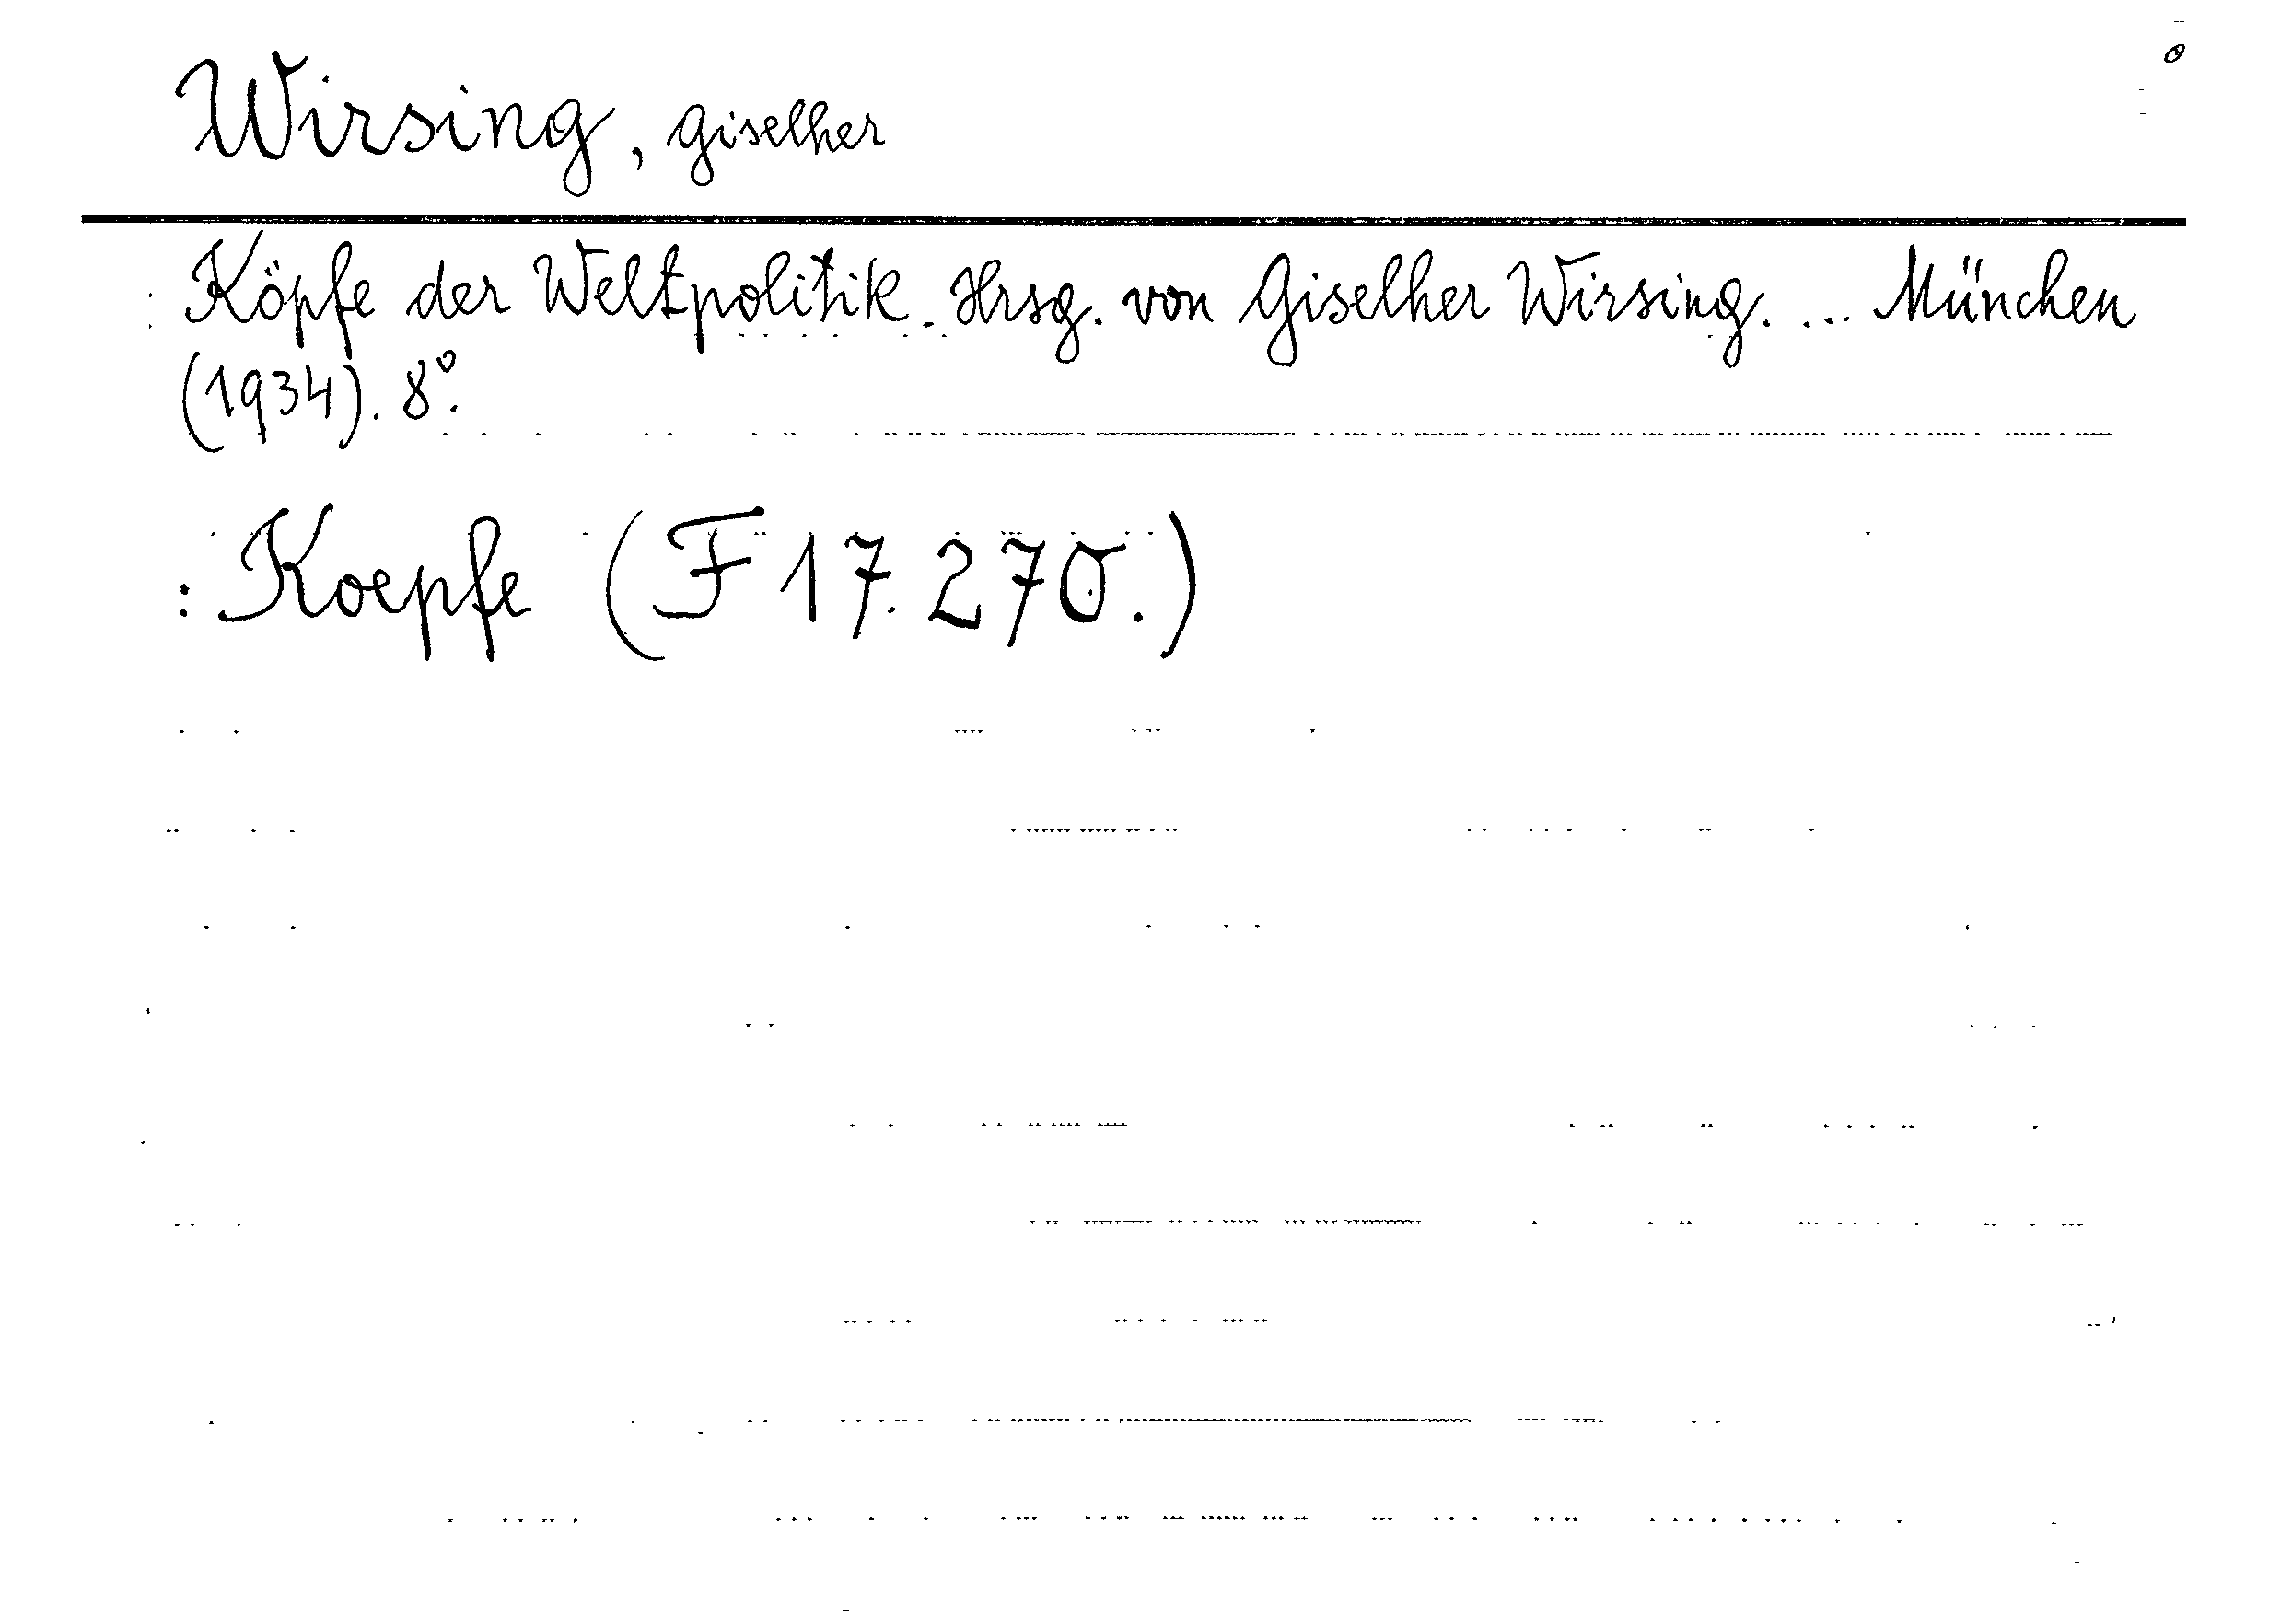 Wirsing, Giselher
Köpfe der Weltpolitik. Hrsg. von Giselher Wirsing. ... München
(1934). 8°.
: Koepfe (F 17.270.)